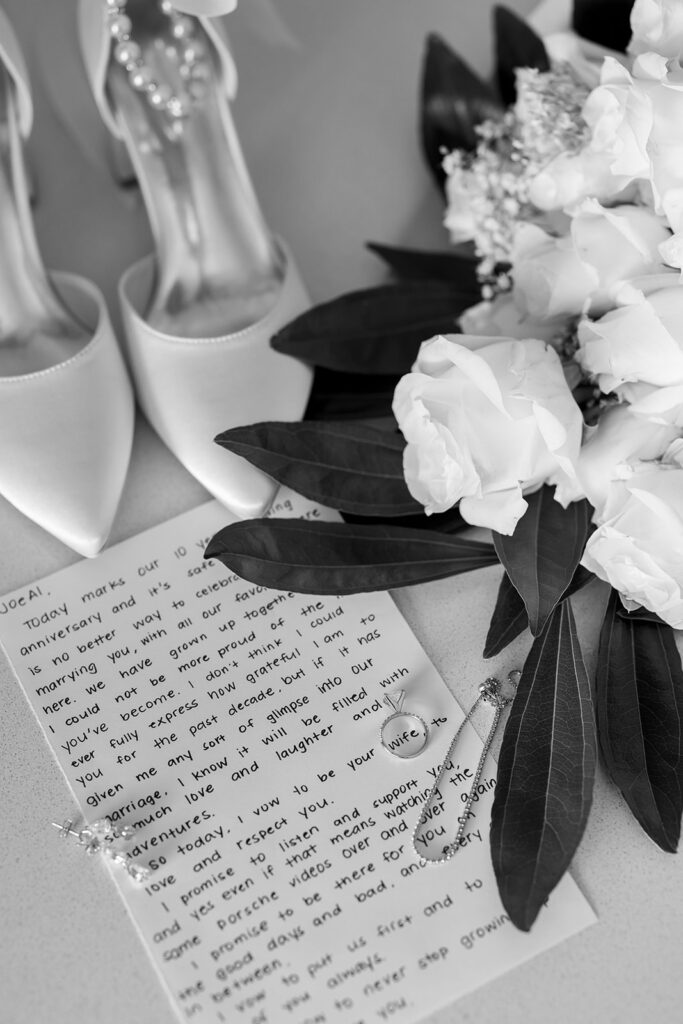 Joe Al,
Today marks our 10 ye
anniversary and it's safe
is no better way to celebra
marrying you, with all our favor
here. We have grown up together
I could not be more proud of the
you've become. I don't think I could
ever fully express how grateful I am to
you for the past decade, but if it has
given me any sort of glimpse into our
marriage, I know it will be filled with
much love and laughter and
adventures.
So today, I vow to be your wife, to
love and respect you.
I promise to listen and support you,
and yes even if that means watching the
same porsche videos over and over again
I promise to be there for you on
the good days and bad, and every
in between.
I vow to put us first and to
of you always.
to never stop growing
you.